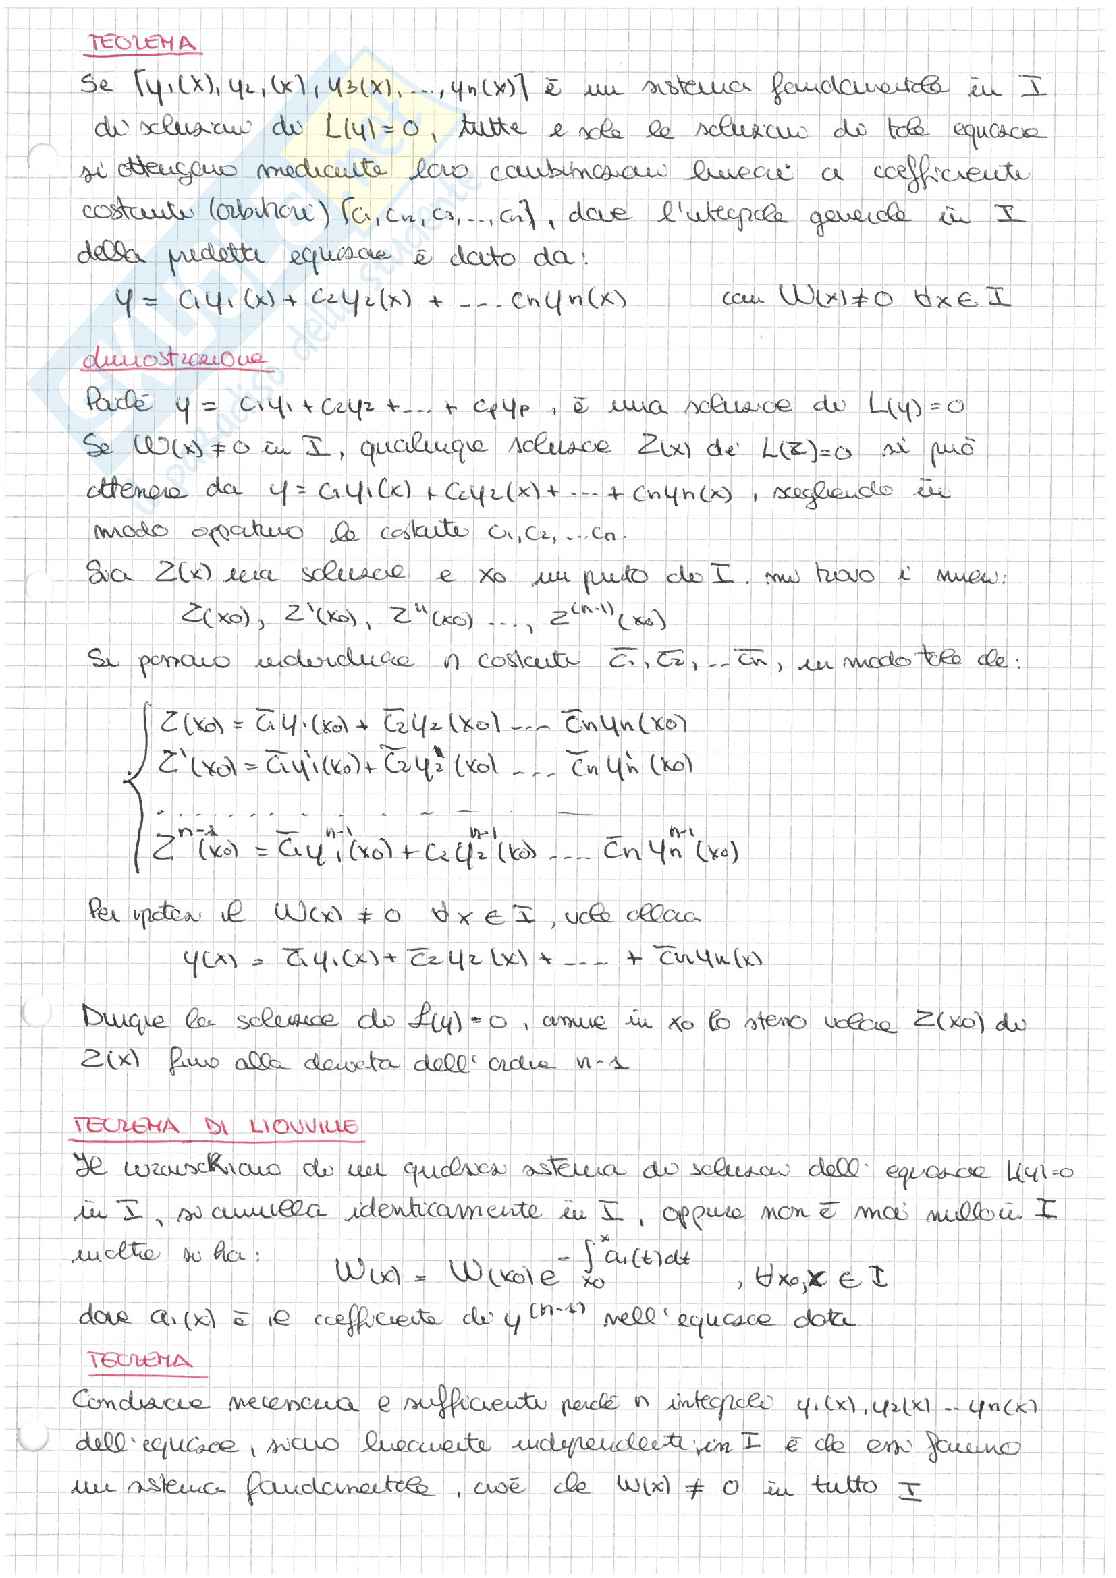 TEOREMA
Se [y1(x), y2,(x), y3(x),..., yn(x)] è un sistema fondamentale in I
di soluzioni di L(y)=0, tutte e sole le soluzioni di tale equazione
si ottengono mediante loro combinazioni lineari a coefficiente
costante (arbitrari) [c1, c2, c3, ..., cn], dove l'integrale generale in I
della predetta equazione è dato da:
y = c1y1(x) + c2y2(x) + .... cnyn(x) con W(x)≠0 ∀x∈I
dimostrazione
Poiché y = c1y1 + c2y2 + ... + cpyp, è una soluzione di L(y)=0
Se W(x)≠0 in I, qualunque soluzione Z(x) di L(Z)=0 si può
ottenere da y= c1y1(x) + c2y2(x) + ... + cnyn(x), scegliendo in
modo opportuno le costanti c1, c2, ... cn.
Sia Z(x) una soluzione e x0 un punto di I. mi trovo i numeri:
Z(x0), Z'(x0), Z''(x0) ..., Z^(n-1)(x0)
Si possono individuare n costanti c̄1, c̄2, ... c̄n, in modo tale che:
Z(x0) = c̄1y1(x0) + c̄2y2(x0) .... c̄nyn(x0)
Z'(x0) = c̄1y1'(x0) + c̄2y2'(x0) .... c̄nyn'(x0)
Z^n-1(x0) = c̄1y1^n-1(x0) + c2y2^n-1(x0) .... c̄nyn^n-1(x0)
Per ipotesi il W(x) ≠ 0 ∀x∈I, vale allora
y(x) = c̄1y1(x) + c̄2y2(x) + .... + c̄nyn(x)
Dunque la soluzione di L(y)=0, assume in x0 lo stesso valore Z(x0) di
Z(x) fino alla derivata dell'ordine n-1
TEOREMA DI LIOUVILLE
Il wronschiano di un qualsiasi sistema di soluzioni dell'equazione L(y)=0
in I, si annulla identicamente in I, oppure non è mai nullo in I
inoltre si ha: W(x) = W(x0) e^-∫x0^x a1(t)dt , ∀x0,x ∈ I
dove a1(x) è il coefficiente di y^(n-1) nell'equazione data
TEOREMA
Condizione necessaria e sufficiente perché n integrali y1(x), y2(x) ... yn(x)
dell'equazione, siano linearmente indipendenti in I è che essi formino
un sistema fondamentale, cioè che W(x) ≠ 0 in tutto I